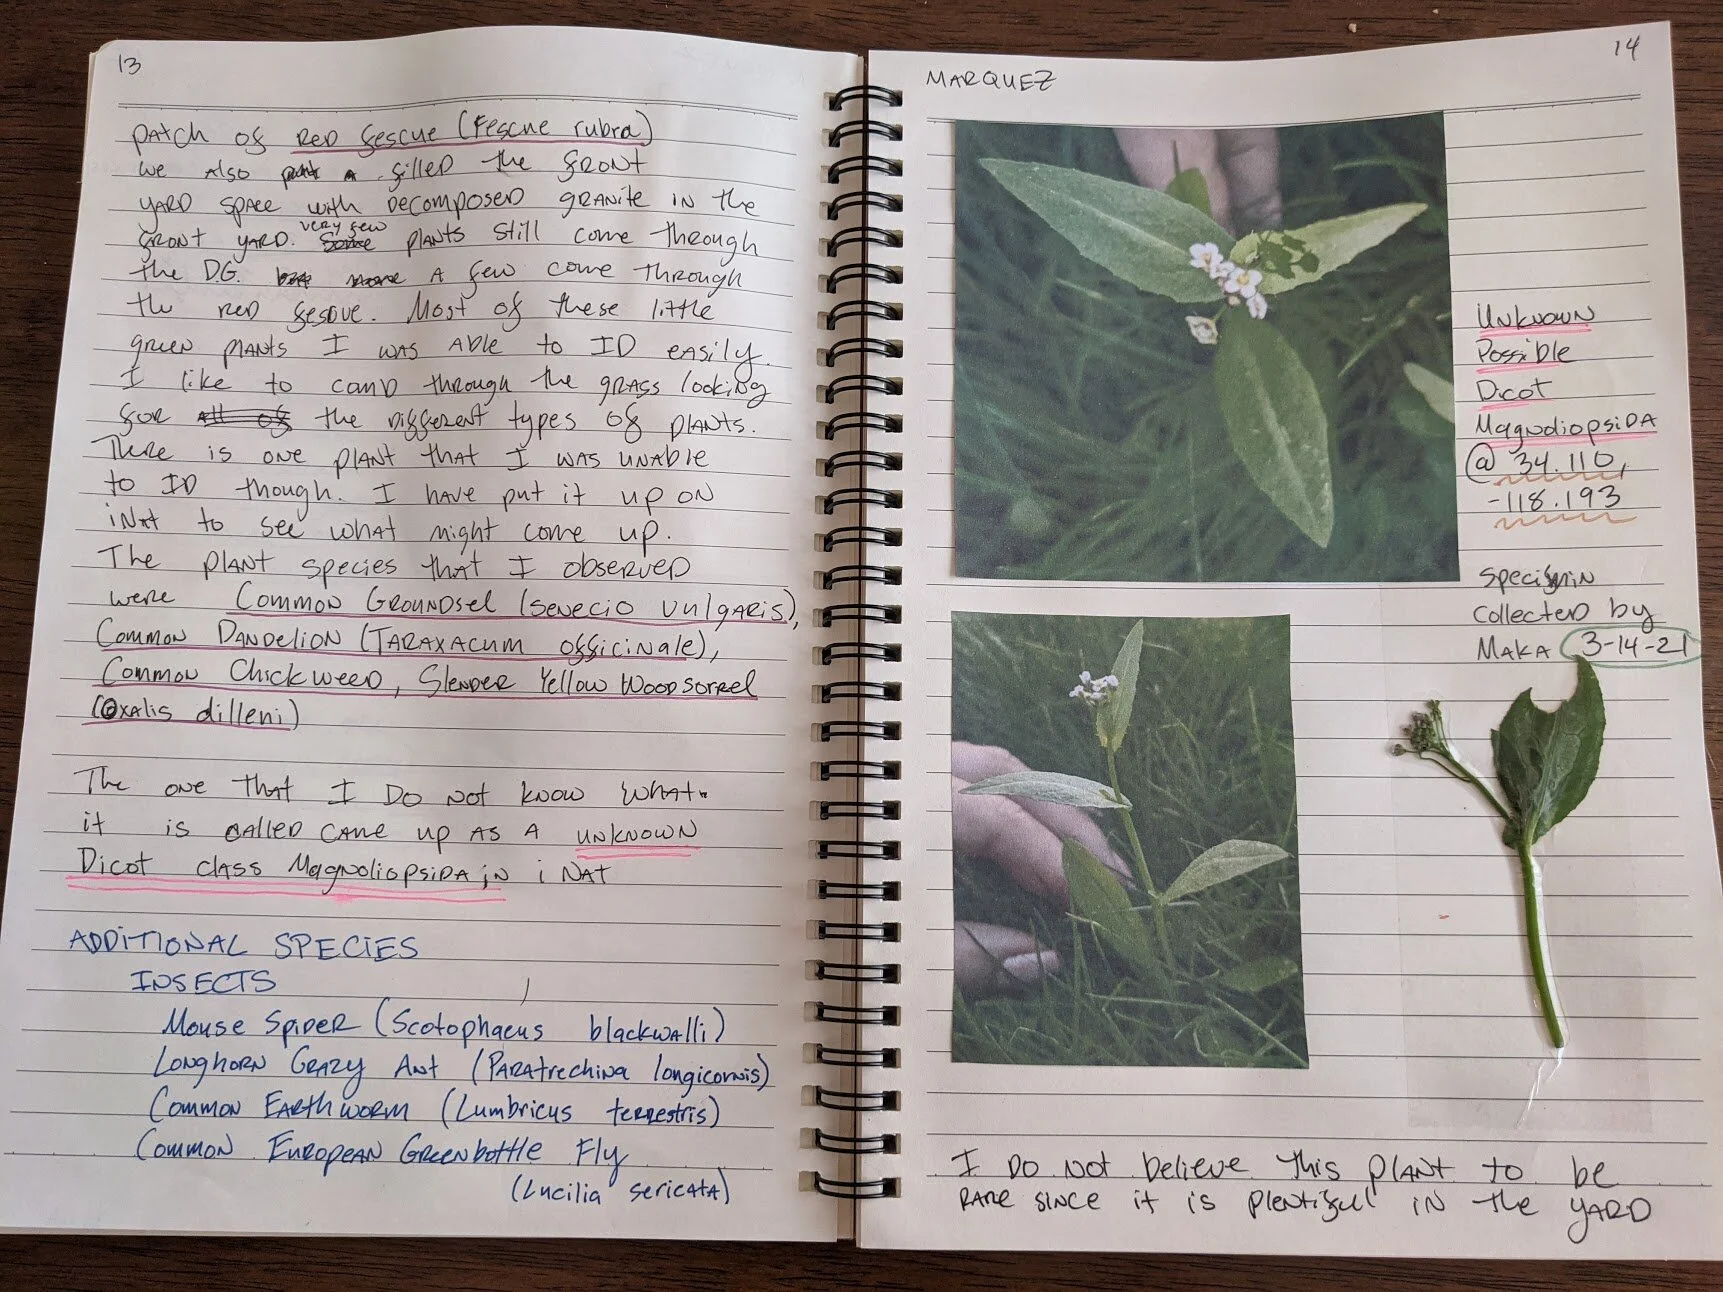 13
patch of Red fescue (Fescue rubra)
we also filled the front
yard space with decomposed granite in the
very few
front yard. Some plants still come through
the D.G. but more A few come through
the red fescue. Most of these little
green plants I was able to ID easily.
I like to comb through the grass looking
for all of the different types of plants.
There is one plant that I was unable
to ID though. I have put it up on
iNat to see what might come up.
The plant species that I observed
were Common Groundsel (Senecio vulgaris),
Common Dandelion (Taraxacum officinale),
Common Chickweed, Slender Yellow Woodsorrel
(Oxalis dilleni)
The one that I do not know what
it is called came up as a unknown
Dicot class Magnoliopsida in iNAT
ADDITIONAL SPECIES
INSECTS
Mouse Spider (Scotophaeus blackwalli)
Longhorn Crazy Ant (Paratrechina longicornis)
Common Earthworm (Lumbricus terrestris)
Common European Greenbottle Fly
(Lucilia sericata)
14
MARQUEZ
Unknown
Possible
Dicot
Magnoliopsida
@ 34.110,
-118.193
Specimin
collected by
Maka 3-14-21
I do not believe this plant to be
rare since it is plentiful in the yard